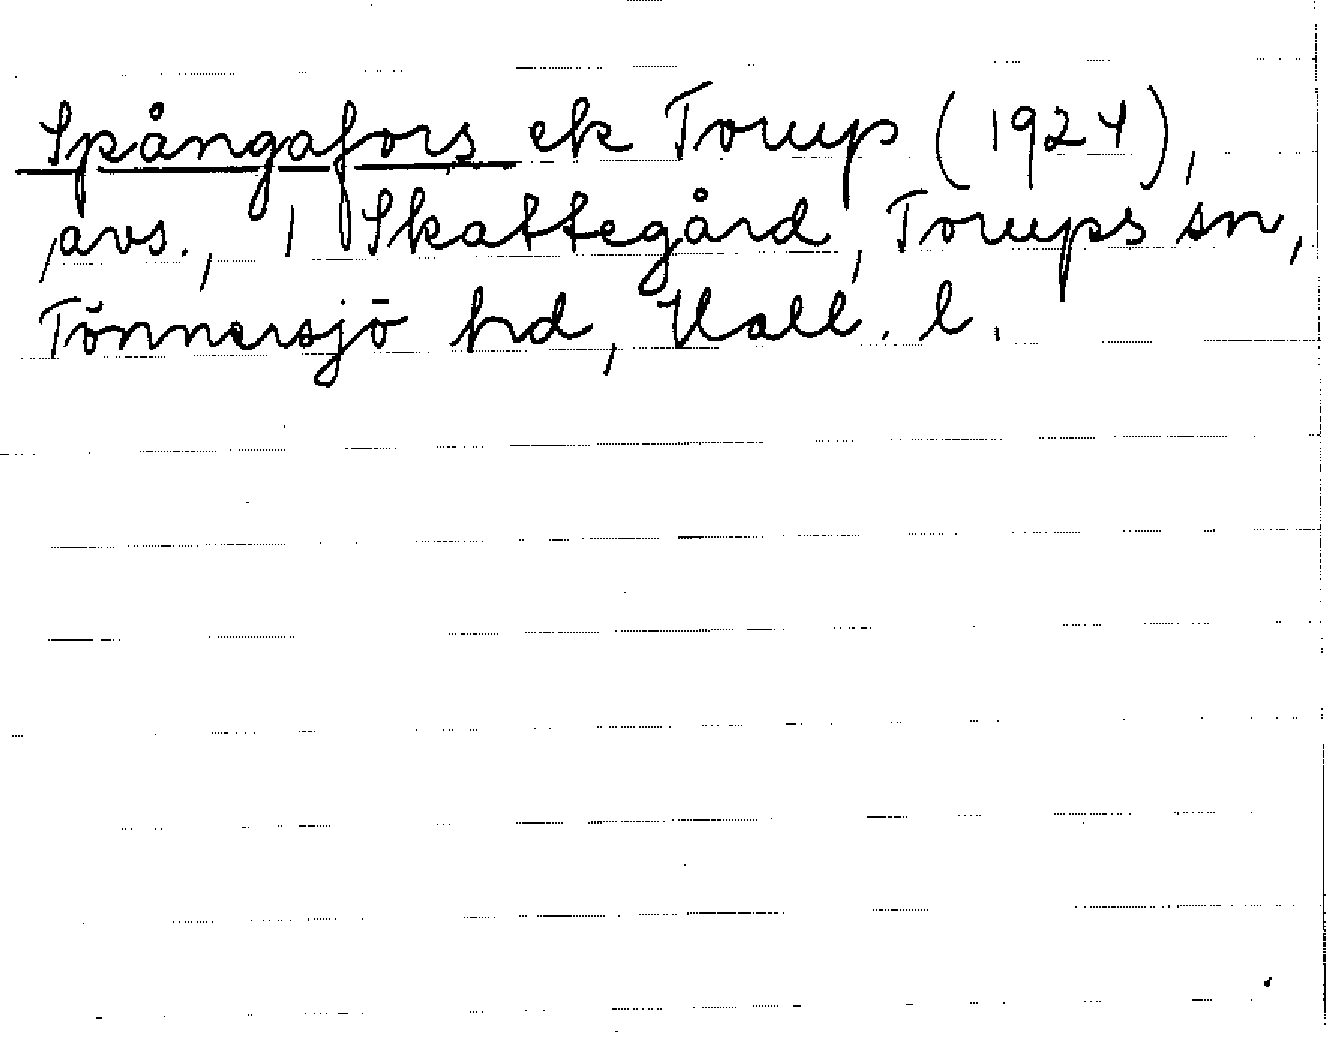 Spångafors ek Torup (1924),
avs., 1 Skattegård, Torups sn,
Tönnersjö hd, Hall. l.